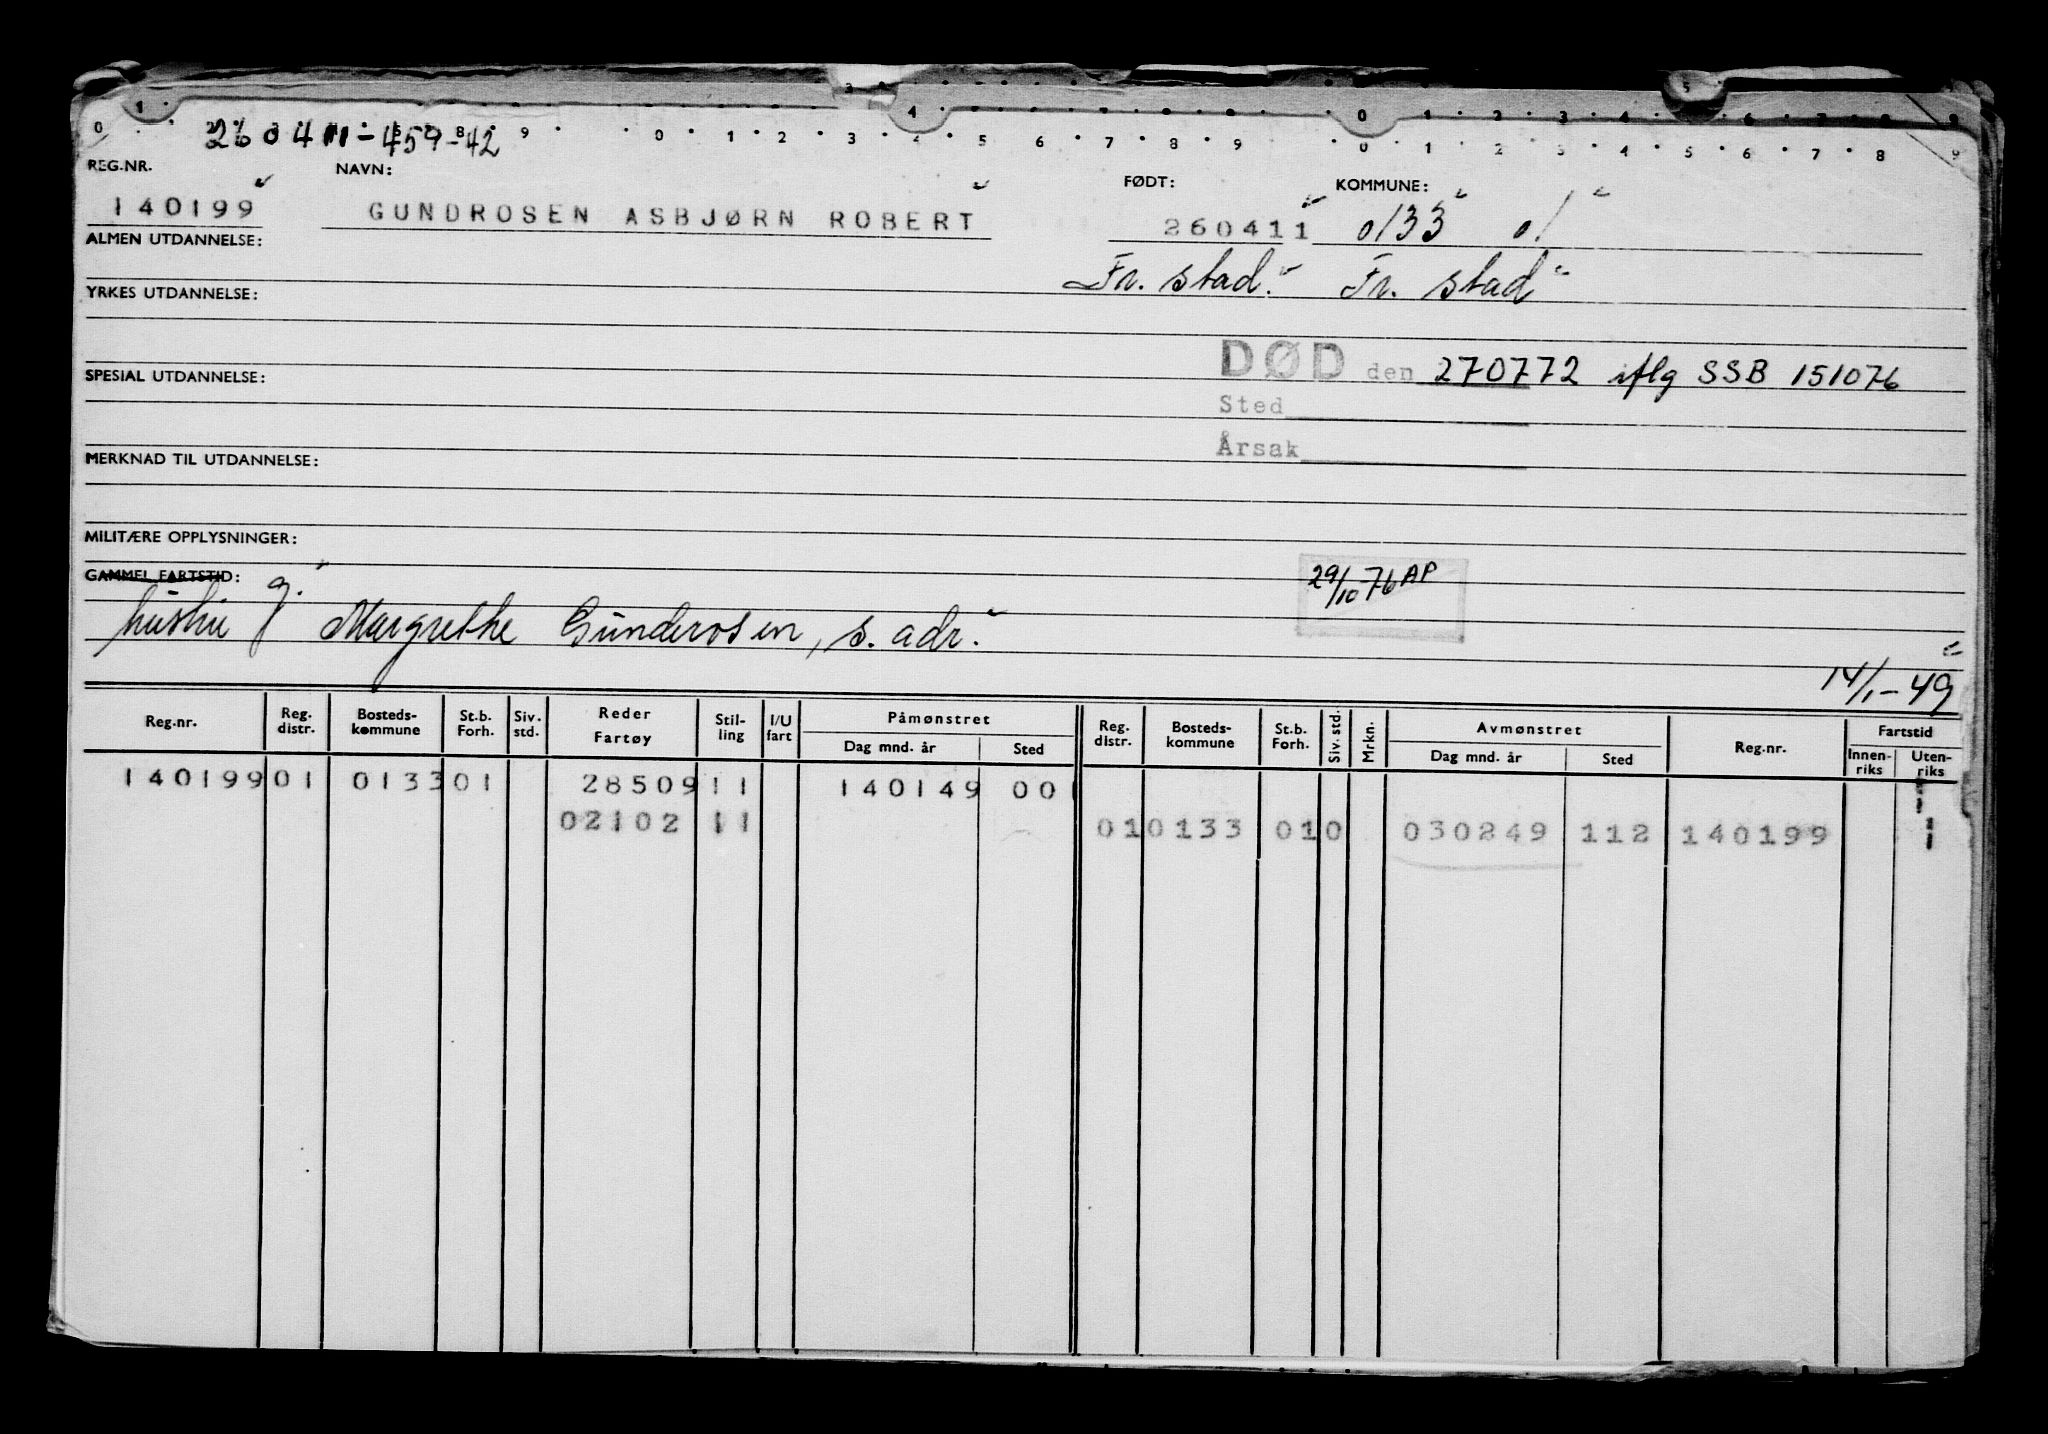 260411-459-42
REG.NR. NAVN: FØDT: KOMMUNE:
140199 GUNDROSEN ASBJØRN ROBERT 260411 0133 01
ALMEN UTDANNELSE:
Fr. stad. Fr. stad
YRKES UTDANNELSE:
DØD den 270772 iflg SSB 151076
SPESIAL UTDANNELSE:
Sted
Årsak
MERKNAD TIL UTDANNELSE:
MILITÆRE OPPLYSNINGER:
GAMMEL FARTSTID:
29/10-76 AP
hustru g. Margrethe Gunderosen, s. adr.
14/1-49
Reg.nr. Reg. distr. Bosteds-kommune St.b. Forh. Siv. std. Reder Fartøy Stil-ling I/U fart Påmønstret Dag mnd. år Sted Reg. distr. Bosteds-kommune St.b. Forh. Siv. std. Mrkn. Avmønstret Dag mnd. år Sted Reg.nr. Fartstid Innen-riks Uten-riks
140199 01 0133 01 28509 11 140149 001
02102 11 01 0133 01 0 030249 112 140199 1